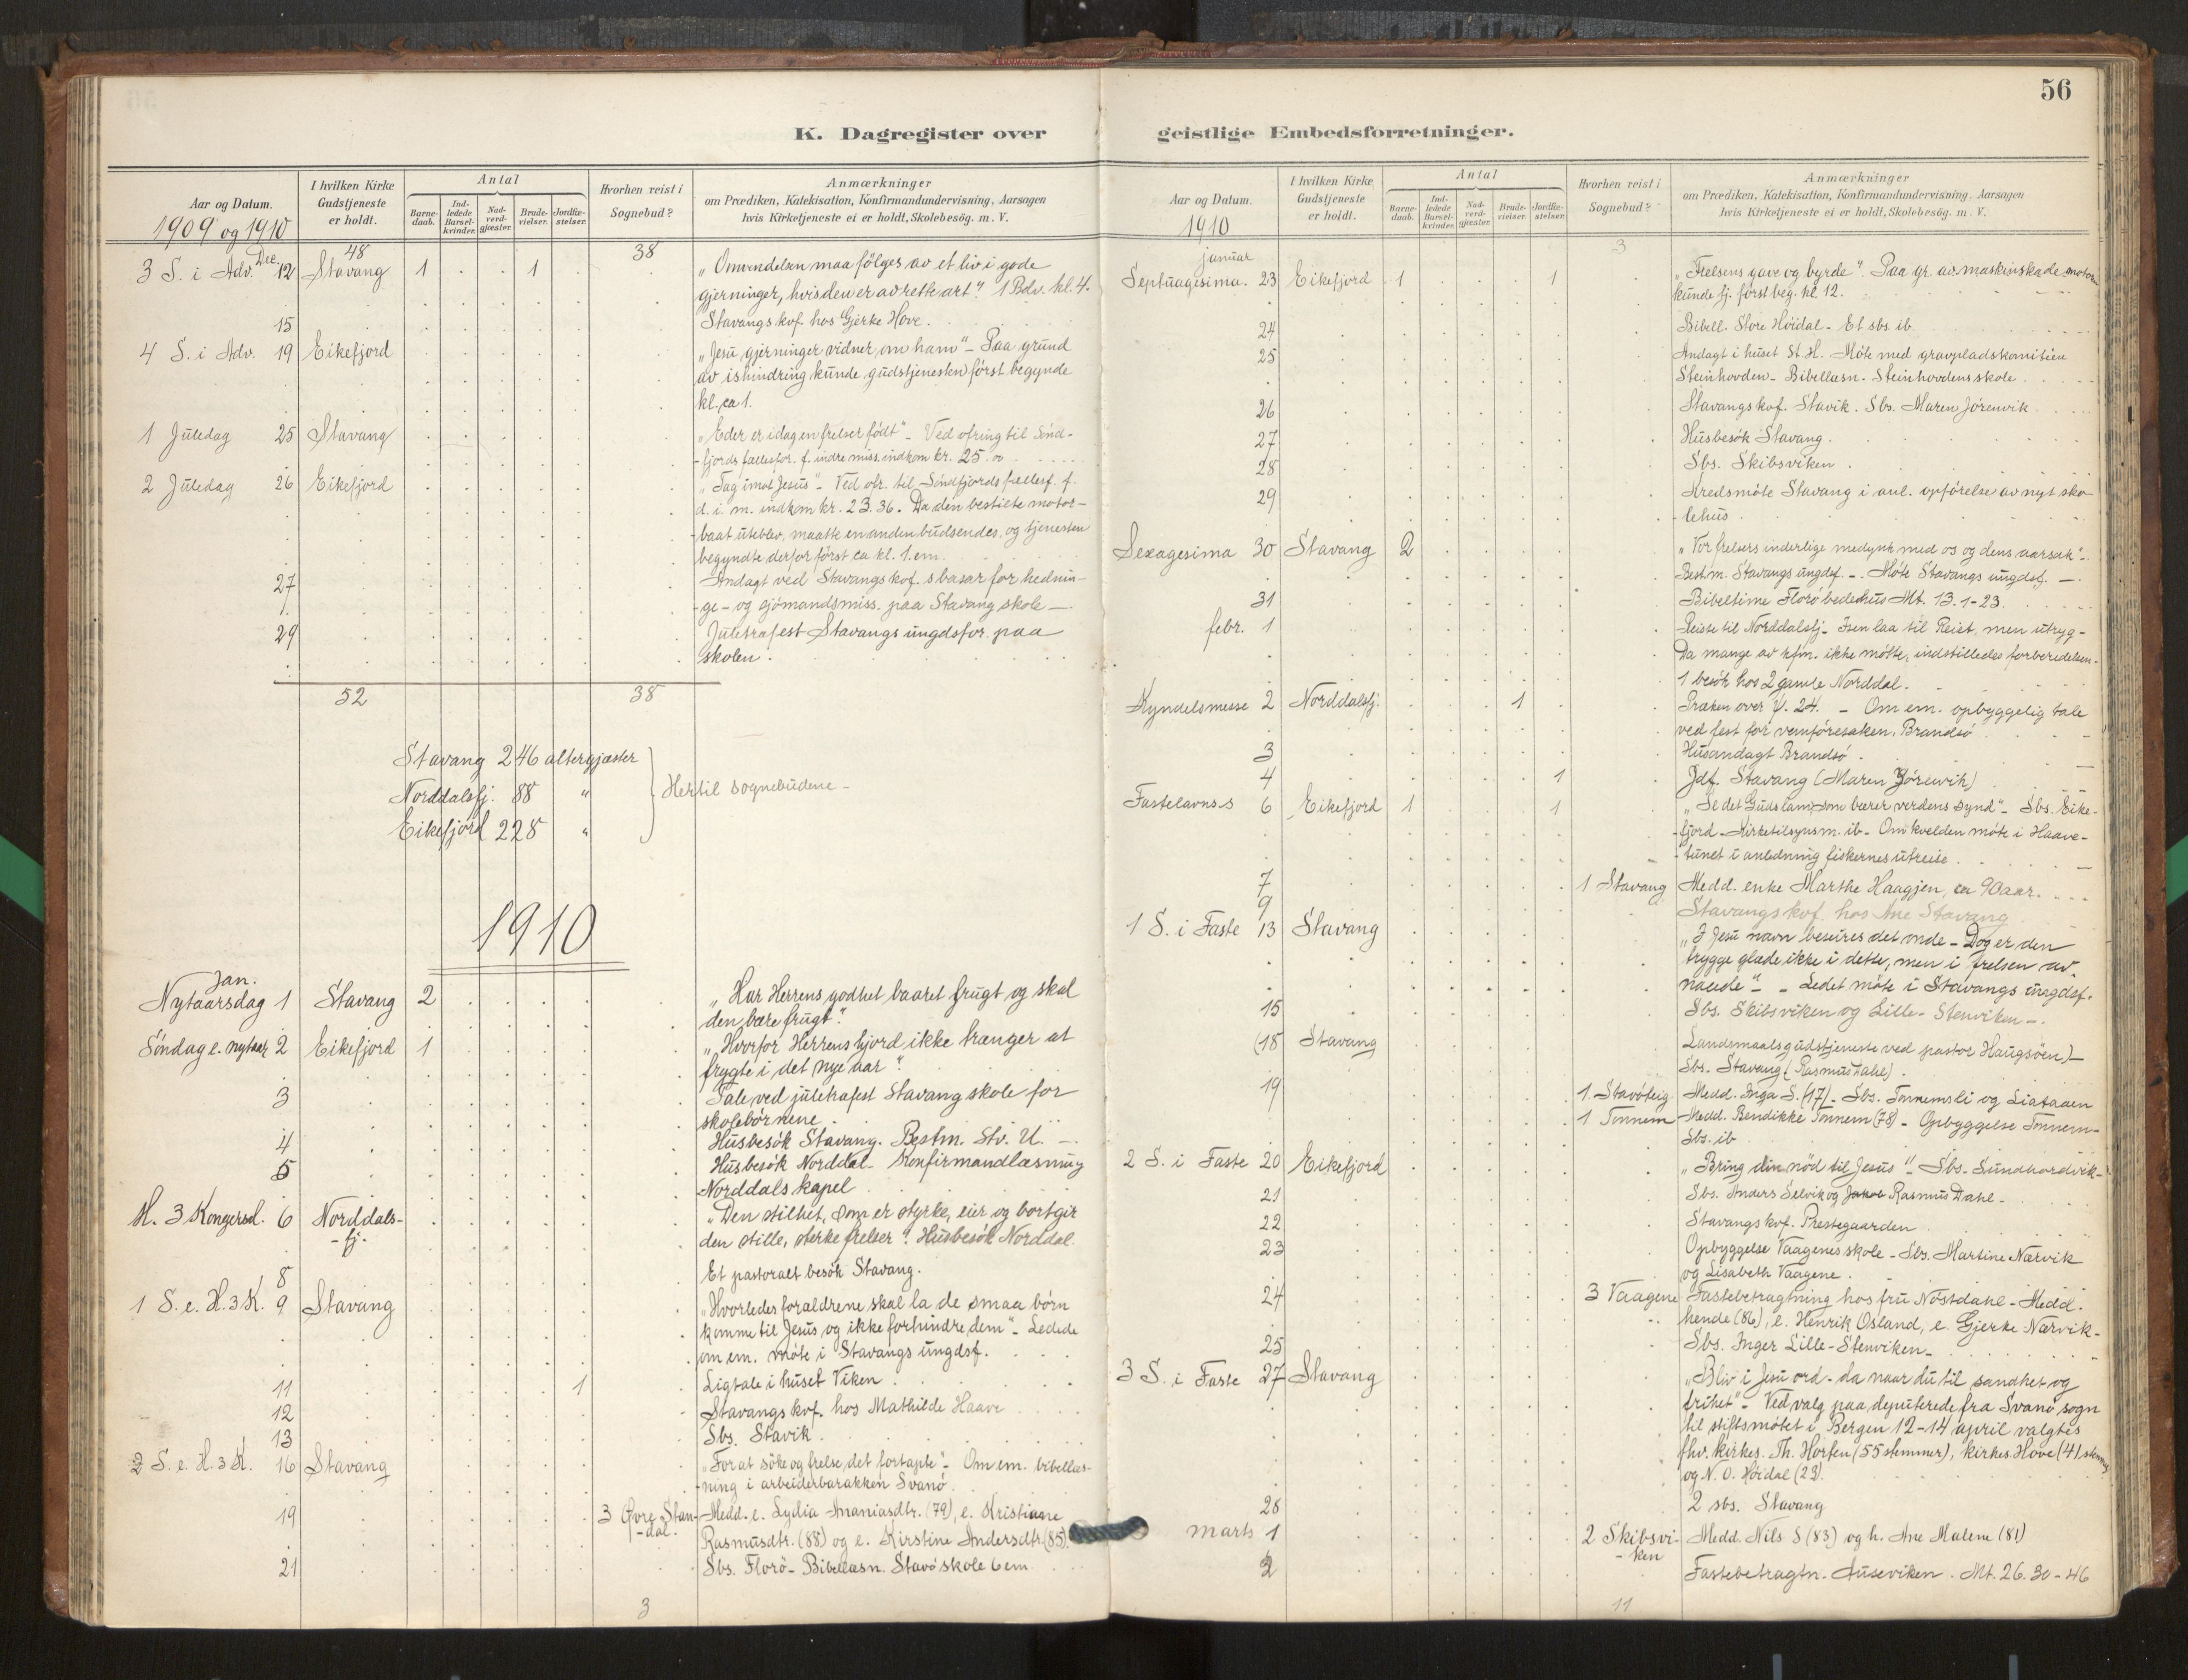 56
K. Dagregister over geistlige Embedsforretninger.
Aar og Datum.
1909 og 1910
I hvilken Kirke Gudstjeneste er holdt.
Antal
Barne-daab.
Ind-ledede Barsel-kvinder.
Nad-verd-gjæster.
Brude-vielser.
Jordfæ-stelser.
Hvorhen reist i Sognebud?
Anmærkninger
om Prædiken, Katekisation, Konfirmandundervisning. Aarsagen
hvis Kirketjeneste ei er holdt, Skolebesög. m. V.
48
38
3 S. i Adv. Dec. 12 Stavang 1 1 „Omvendelsen maa følges av et liv i gode
gjerninger, hvis den er av rette art". 1 Bdv. kl. 4.
15 Stavangs kvf. hos Gjerke Hove.
4 S. i Adv. 19 Eikefjord „Jesu gjerninger vidner om ham" – Paa grund
av ishindring kunde gudstjenesten först begynde
kl. ca 1.
1 Juledag 25 Stavang „Eder er idag en frelser født" – Ved ofring til Sönd-
-fjords fællesfor. f. indre miss. indkom kr. 25.00
2 Juledag 26 Eikefjord „Tag imot Jesus" – Ved ofr. til Söndfjords fællesf. f.
d. i. m. indkom kr. 23.36. Da den bestilte motor-
-baat uteblev, maatte en anden budsendes, og tjenesten
begyndte derfor först ca kl. 1. em.
27 Andagt ved Stavangs kvf.s basar for hednin-
-ge- og sjömandsmiss. paa Stavang skole –.
29 Juletræfest Stavangs ungdsfor. paa
skolen.
52 38
Stavang 246 altergjæster
Norddalsfj. 88 "
Eikefjord 228 "
Hertil sognebudene –
1910
Jan.
Nytaarsdag 1 Stavang 2 „Har Herrens godhet baaret frugt og skal
den bære frugt".
Söndag e. nytaar 2 Eikefjord 1 „Hvorfor Herrens hjord ikke trænger at
frygte i det nye aar".
3 Tale ved juletræfest Stavang skole for
skolebörnene.
4 Husbesök Stavang. Bestm. Stv. U. –.
5 Husbesök Norddal – Konfirmandlæsning
Norddals kapel
H. 3 Kongersd. 6 Norddals-
-fj.
„Den stilhet, som er styrke, eier og bortgir
den stille, sterke frelser". Husbesök Norddal.
8 Et pastoralt besök Stavang.
1 S. e. H. 3 K. 9 Stavang „Hvorledes forældrene skal la de smaa börn
komme til Jesus og ikke forhindre dem" – Ledede
om em. möte i Stavangs ungdsf.
11 1 Ligtale i huset Viken
12 Stavangs kvf. hos Mathilde Haave
13 Sbs. Stavik.
2 S. e. H. 3 K. 16 Stavang „For at söke og frelse det fortapte" – Om em. bibellæs-
-ning i arbeiderbarakken Svanö.
19 3 Øvre Stan-
-dal.
Medd. e. Lydia Ananiasdtr. (79), e. Kristiane
Rasmusdtr. (88) og e. Kirstine Andersdtr. (85).
21 Sbs. Florö – Bibellæsn. Stavö skole 6 em.
3
Aar og Datum.
1910
I hvilken Kirke Gudstjeneste er holdt.
Antal
Barne-daab.
Ind-ledede Barsel-kvinder.
Nad-verd-gjæster.
Brude-vielser.
Jordfæ-stelser.
Hvorhen reist i Sognebud?
Anmærkninger
om Prædiken, Katekisation, Konfirmandundervisning, Aarsagen
hvis Kirketjeneste ei er holdt, Skolebesög. m. V.
3
januar
Septuagesima. 23 Eikefjord 1 1 „Frelsens gave og byrde". Paa gr. av maskinskade motor
kunde tj. först beg. kl. 12.
24 Bibell. Store Höidal – Et sbs. ib.
25 Andagt i huset St. H. Möte med gravpladskomitéen
Steinhovden – Bibellæsn. Steinhovdens skole
26 Stavangs kvf. Stavik. Sbs. Maren Jörenvik
27 Husbesök Stavang.
28 Sbs. Skibsviken.
29 Kredsmöte Stavang i anl. opförelse av nyt sko-
-lehus.
Sexagesima 30 Stavang 2 „Vor frelsers inderlige medynk med os og dens aarsak" –
Bestm. Stavangs ungdsf. –. Möte Stavangs ungdsf. –.
31 Bibeltime Florö bedehus Mt. 13. 1-23.
febr. 1 Reiste til Norddalsfj – Isen laa til Reiet, men utryg –
Da mange av kfm. ikke mötte, indstilledes forberedelsen.
1 besök hos 2 gamle Norddal.
Kyndelsmesse 2 Norddalsfj. 1 Præken over ψ. 24. – Om em. opbyggelig tale
ved fest for vanföresaken, Brandsö
3 Husandagt Brandsö.
4 1 Jdf. Stavang (Maren Jörenvik)
Fastelavns s 6 Eikefjord 1 1 „Se det Guds lam, som bærer verdens synd" – Sbs. Eike-
-fjord – Kirketilsynsm. ib – Om kvelden möte i Haave-
-tunet i anledning fiskernes utreise.
7 1 Stavang Medd. enke Marthe Haagjen, ca 90 aar.
9 Stavangs kvf. hos Ane Stavang
1 S. i Faste 13 Stavang „I Jesu navn beseires det onde – Dog er den
trygge glæde ikke i dette, men i frelsen av
naade" – Ledet möte i Stavangs ungdsf.
15 Sbs. Skibsviken og Lille-Stenviken –.
(18 Stavang Landsmaalsgudstjeneste ved pastor Haugsöen) –
Sbs. Stavang (Rasmus Dahl).
19 1 Stavöteig Medd. Inga S. (17) – Sbs. Tonnemsli og Liataaen
1 Tonnem Medd. Bendikke Tonnem (78) – Opbyggelse Tonnem –
Sbs. ib
2 S. i Faste 20 Eikefjord „Bring din nöd til Jesus" – Sbs. Sundhordvik –
21 Sbs. Anders Selvik og Rasmus Dahl –
22 Stavangs kvf. Prestegaarden
23 Opbyggelse Vaagenes skole – Sbs. Martine Nærvik
og Lisabeth Vaagene.
24 3 Vaagene Fastebetragtning hos fru Nöstdahl – Medd.
hende (86), e. Henrik Osland, e. Gjerke Nærvik –
25 Sbs. Inger Lille-Stenviken –
3 S. i Faste 27 Stavang „Bliv i Jesu ord – da naar du til sandhet og
frihet" – Ved valg paa deputerede fra Svanö sogn
til stiftsmötet i Bergen 12-14 april valgtes
fhv. kirkes. Th. Horten (55 stemmer), kirkes. Hove (41 stemmer)
og N. O. Höidal (23).
28 2 sbs. Stavang
marts 1 2 Skibsvi-
-ken
Medd. Nils S (83) og h. Ane Malene (81)
2 Fastebetragtn. Auseviken. Mt. 26. 30-46
11